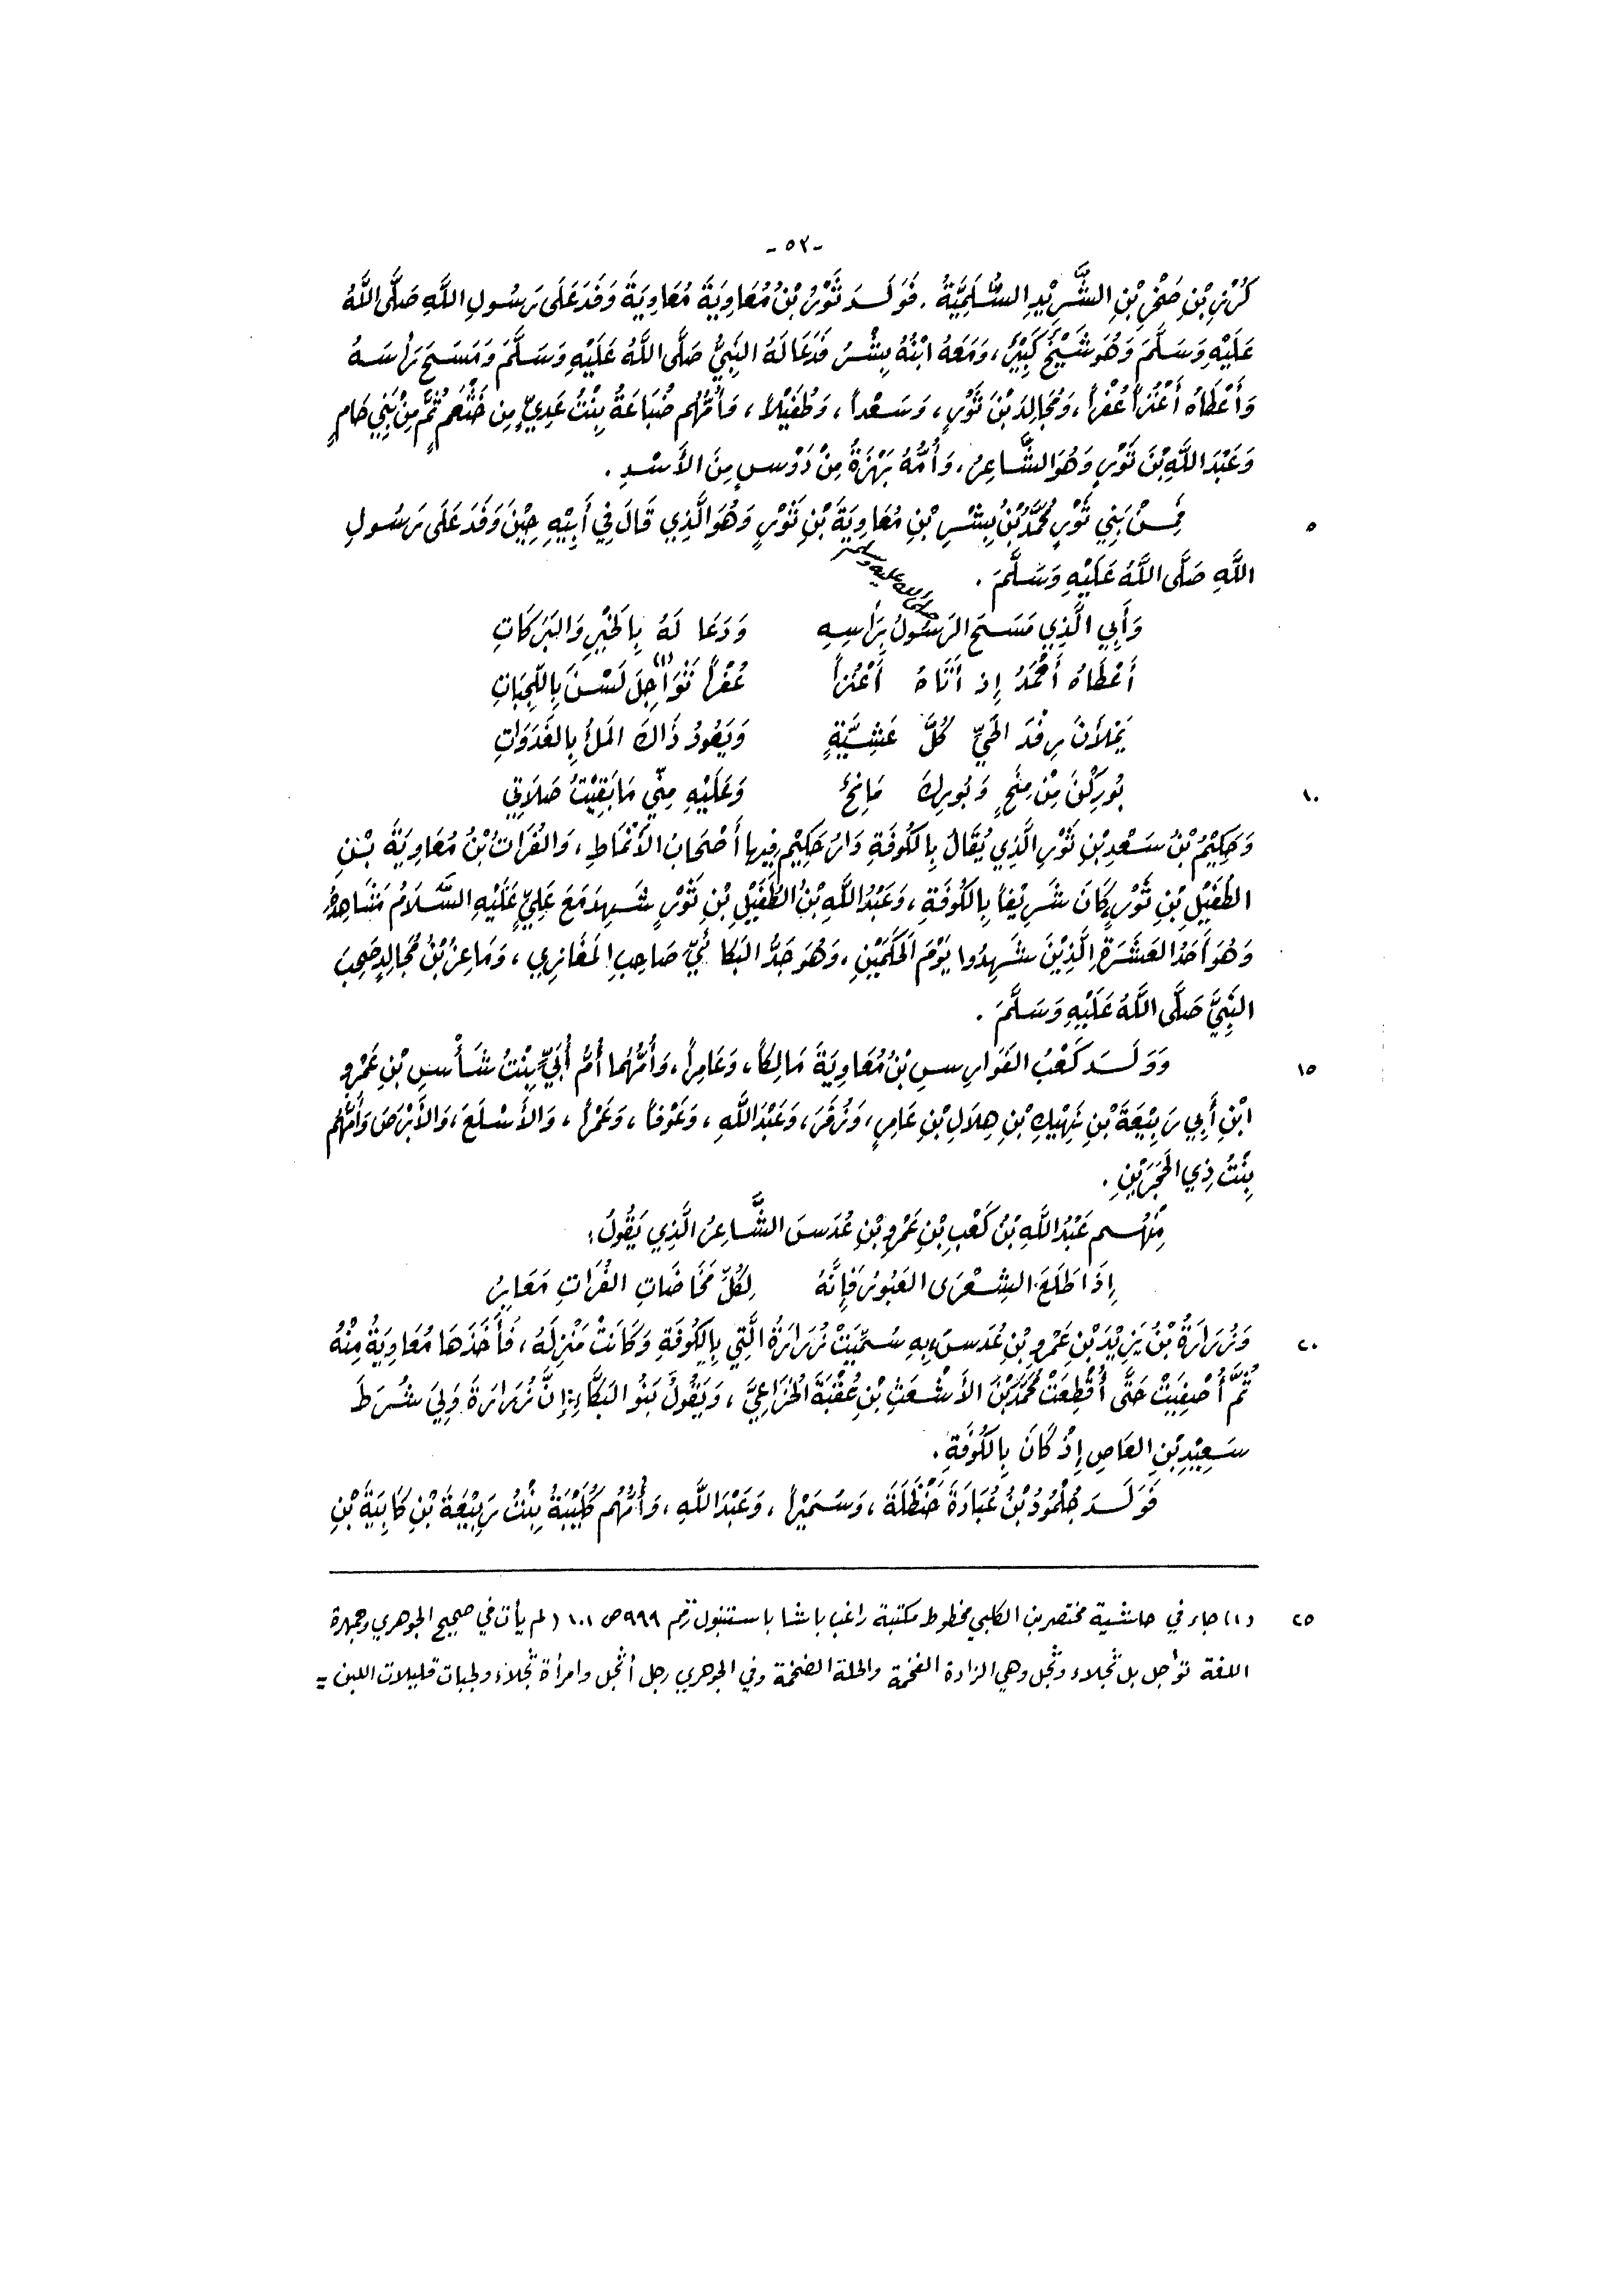 -٥٢-
كُرْزِ بْنِ صَخْرِ بْنِ الشَّرِيْدِ السُّلَمِيَّةُ. فَوَلَدَ ثَوْرُ بْنُ مُعَاوِيَةَ مُعَاوِيَةَ وَفَدَ عَلَى رَسُولِ اللَّهِ صَلَّى اللَّهُ
عَلَيْهِ وَسَلَّمَ وَهُوَ شَيْخٌ كَبِيْرٌ، وَمَعَهُ ابْنُهُ بِشْرُ فَدَعَا لَهُ النَّبِيُّ صَلَّى اللَّهُ عَلَيْهِ وَسَلَّمَ وَمَسَحَ رَأْسَهُ
وَأَعْطَاهُ أَعْنُزاً عُفْراً، وَمُجَالِدَ بْنَ ثَوْرٍ، وَسَعْداً، وَطُفَيْلاً، وَأُمُّهُم ضُبَاعَةُ بِنْتُ عَدِيٍّ مِن خَثْعَمٍ ثُمَّ مِنْ بَنِي حَامٍ
وَعَبْدَ اللَّهِ بْنَ ثَوْرٍ وَهُوَ الشَّاعِرُ، وَأُمُّهُ بَهْزَةُ مِنْ دَوْسٍ مِنَ الأَسْدِ.
٥ فَمِنْ بَنِي ثَوْرٍ مُحَمَّدُ بْنُ بِشْرِ بْنِ مُعَاوِيَةَ بْنِ ثَوْرٍ وَهُوَ الَّذِي قَالَ فِي أَبِيْهِ حِيْنَ وَفَدَ عَلَى رَسُولِ
اللَّهِ صَلَّى اللَّهُ عَلَيْهِ وَسَلَّمَ.
صلى الله عليه وسلم
وَأَبِي الَّذِي مَسَحَ الرَسُولُ بِرَأْسِهِ وَدَعَا لَهُ بِالْخَيْرِ وَالبَرَكَاتِ
أَعْطَاهُ أَحْمَدُ إِذ أَتَاهُ أَعْنُزاً عُفْراً نَوَاجِلَ(١) لَسْنَ بِاللَّجِبَاتِ
يَمْلَأْنَ رِفْدَ الحَيِّ كُلَّ عَشِيَّةٍ وَيَعُودُ ذَاكَ المَلْءُ بِالغَدَوَاتِ
١٠ بُورِكْنَ مِنْ مِنَحٍ وَبُورِكَ مَانِحٌ وَعَلَيْهِ مِنِّي مَا بَقِيْتُ صَلَاتِي
وَحَكِيْمُ بْنُ سَعْدِ بْنِ ثَوْرٍ الَّذِي يُقَالُ بِالكُوفَةِ دَارُ حَكِيْمٍ فِيها أَصْحَابُ الأَنْمَاطِ، وَالفُرَاتُ بْنُ مُعَاوِيَةَ بْنِ
الطُفَيْلِ بْنِ ثَوْرٍ كَانَ شَرِيْفاً بِالكُوفَةِ، وَعَبْدُ اللَّهِ بْنُ الطُفَيْلِ بْنِ ثَوْرٍ شَهِدَ مَعَ عَلِيٍّ عَلَيْهِ السَّلَامُ مَشَاهِدَهُ
وَهُوَ أَحَدُ العَشَرَةِ الَّذِيْنَ شَهِدُوا يَوْمَ الحَكَمَيْنِ، وَهُوَ جَدُّ البَكَائِيِّ صَاحِبِ المَغَازِي، وَمَاعِزُ بْنُ مُجَالِدٍ صَحِبَ
النَّبِيَّ صَلَّى اللَّهُ عَلَيْهِ وَسَلَّمَ.
١٥ وَوَلَدَ كَعْبُ الفَوَارِسِ بْنُ مُعَاوِيَةَ مَالِكاً، وَعَامِراً، وَأُمُّهُما أُمُّ أُبَيٍّ بِنْتُ شَأْسِ بْنِ عَمْرِو
ابْنِ أَبِي رَبِيْعَةَ بْنِ نَهِيْكِ بْنِ هِلَالِ بْنِ عَامِرٍ، وَزُفَرَ، وَعَبْدَ اللَّهِ، وَعَوْفاً، وَعَمْراً، وَالأَسْلَعَ، وَالأَبْرَصَ وَأُمُّهُم
بِنْتُ ذِي الحَجَرَيْنِ.
مِنْهُم عَبْدُ اللَّهِ بْنُ كَعْبِ بْنِ عَمْرِو بْنِ عُدَسَ الشَّاعِرُ الَّذِي يَقُولُ:
إِذَا طَلَعَ الشِعْرَى العَبُورُ فَإِنَّهُ لِكُلِّ مَخَاضَاتِ الفُرَاتِ مَعَابِرُ
٢٠ وَزُرَارَةُ بْنُ يَزِيْدَ بْنِ عَمْرِو بْنِ عُدَسَ، بِهِ سُمِّيَتْ زُرَارَةُ الَّتِي بِالكُوفَةِ وَكَانَتْ مَنْزِلَهُ، فَأَخَذَهَا مُعَاوِيَةُ مِنْهُ
ثُمَّ أُصْفِيَتْ حَتَّى أُقْطِعَتْ مُحَمَّدَ بْنَ الأَشْعَثِ بْنِ عُقْبَةَ الخُزَاعِيَّ، وَيَقُولُ بَنُو البَكَّاءِ: إِنَّ زُرَارَةَ وَلِيَ شُرَطَ
سَعِيْدِ بْنِ العَاصِ إِذْ كَانَ بِالكُوفَةِ.
فَوَلَدَ جُلْمُودُ بْنُ عُبَادَةَ حَنْظَلَةَ، وَسُمَيْراً، وَعَبْدَ اللَّهِ، وَأُمُّهُم كُلَيْبَةُ بِنْتُ رَبِيْعَةَ بْنِ كَابِيَةَ بْنِ
٢٥ (١) جاء في حاشية مختصر بن الكلبي مخطوط مكتبة راغب باشا باستنبول رقم ٩٩٩ ص ١٠١ (لم يأت في صحيح الجوهري وجمهرة
اللغة نوأجل بل نجلاء ونجل وهي الزادة الضخمة والحلة الضخمة وفي الجوهري رجل أنجل وامرأة نجلاء ولجبات قليلات اللبن =